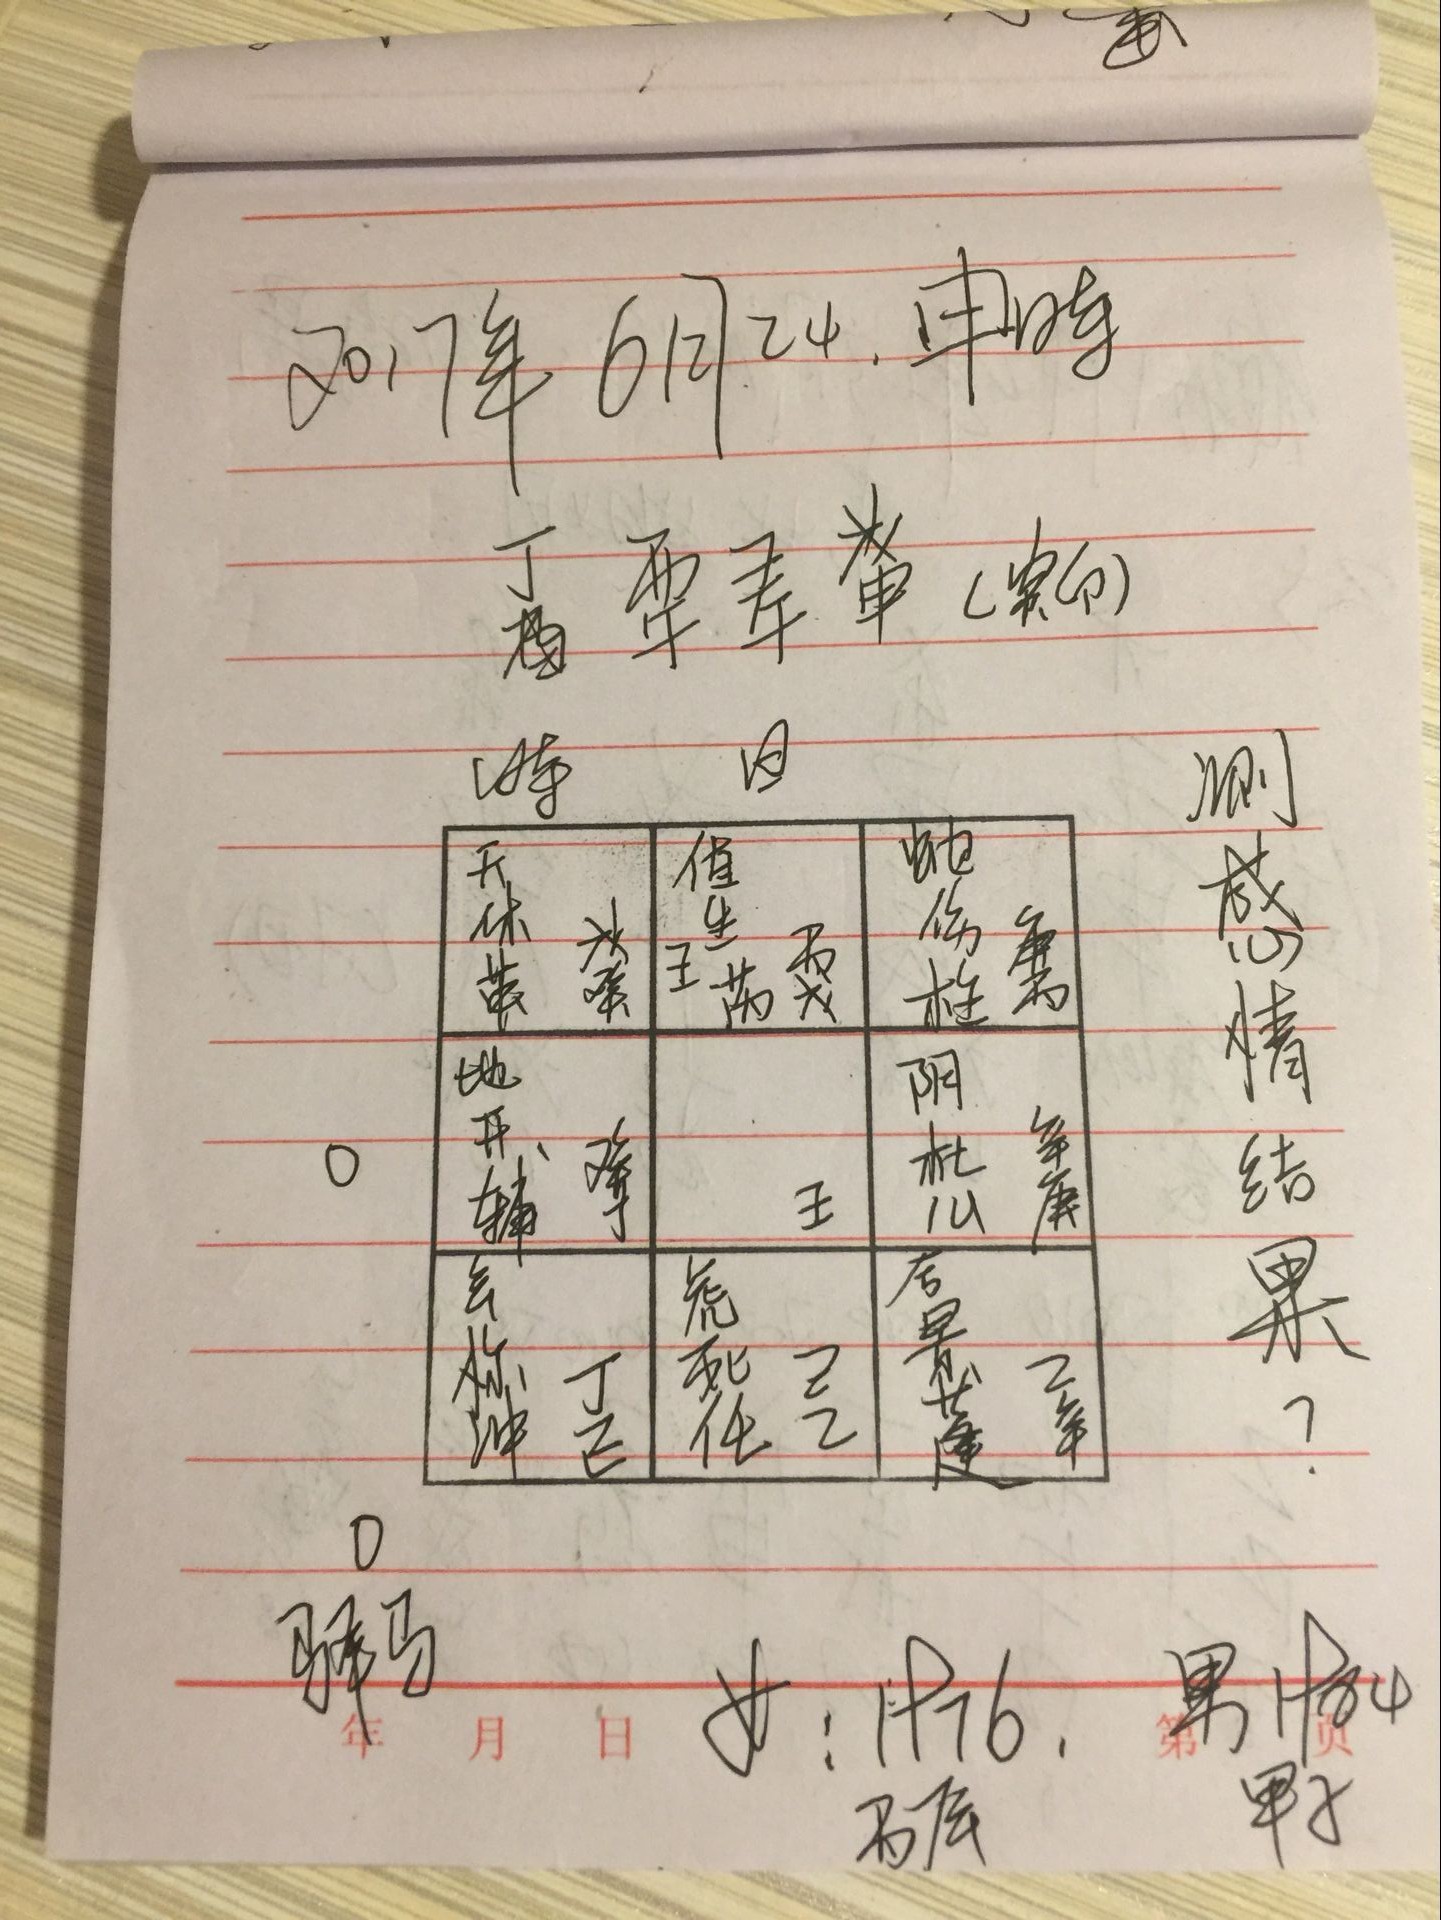 2017年 6月24. 申时
丁 丙 壬 戊
酉 午 午 申 (寅卯)
时 日
测感情结果?
天 休 英
值 生 壬 芮 丙 戊
蛇 伤 柱 庚 丙
地 开 辅 丁
0
壬
阴 杜 心 辛 庚
玄 惊 冲 丁 己
虎 死 任 己 乙
后 景 蓬 乙 辛
0
驿马
年 月 日
女: 1976. 男1984
丙辰 甲子
第 页